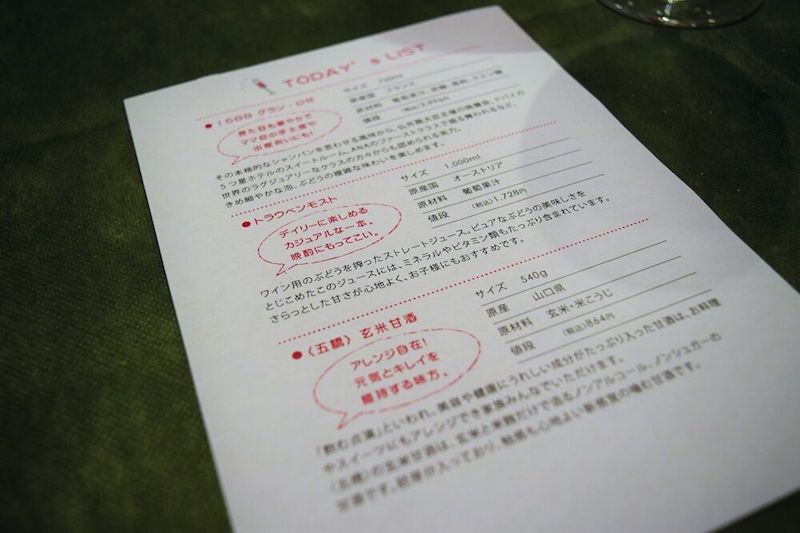 TODAY' s LIST
● 1688 グラン・ロゼ
見た目も華やかで
ママ会の手土産や
出産祝いにも!
サイズ 750ml
原産国 フランス
原材料
値段
その本格的なシャンパンを思わせる風味から、仏外務大臣主催の晩餐会、ドバイの
5つ星ホテルのスイートルーム、ANAのファーストクラスで振る舞われるなど、
世界のラグジュアリーなクラスの方々からも認められる実力。
きめ細やかな泡、ぶどうの複雑な味わいを楽しめます。
● トラウベンモスト
デイリーに楽しめる
カジュアルな一本。
晩酌にもってこい。
サイズ 1,000ml
原産国 オーストリア
原材料 葡萄果汁
値段 (税込)1,728円
ワイン用のぶどうを搾ったストレートジュース。ピュアなぶどうの美味しさを
とじこめたこのジュースには、ミネラルやビタミン類もたっぷり含まれています。
さらっとした甘さが心地よく、お子様にもおすすめです。
● 〈五穣〉玄米甘酒
アレンジ自在!
元気とキレイを
維持する味方。
サイズ 540g
原産 山口県
原材料 玄米・米こうじ
値段 (税込)864円
「飲む点滴」といわれ、美容や健康にうれしい成分がたっぷり入った甘酒は、お料理
やスイーツにもアレンジでき家族みんなでいただけます。
〈五穣〉の玄米甘酒は、玄米と米麹だけで造るノンアルコール、ノンシュガーの
甘酒です。 が入っており、 も心地よい新感覚の噛む甘酒です。